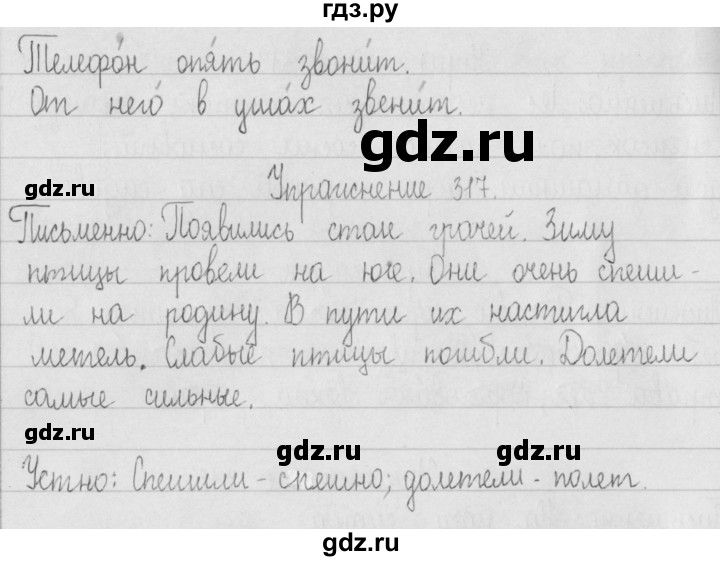 гдз.ру
Телефо́н опя́ть звони́т.
От него́ в уша́х звени́т.
gdz.ru
gdz.ru
Упражнение 317.
Письменно: Появились стаи грачей. Зиму
птицы провели на юге. Они очень спеши-
ли на родину. В пути их настигла
метель. Слабые птицы погибли. Долетели
самые сильные.
gdz.ru
gdz.ru
gdz.ru
Устно: Спешили - спешно; долетели - полет.
gdz.ru